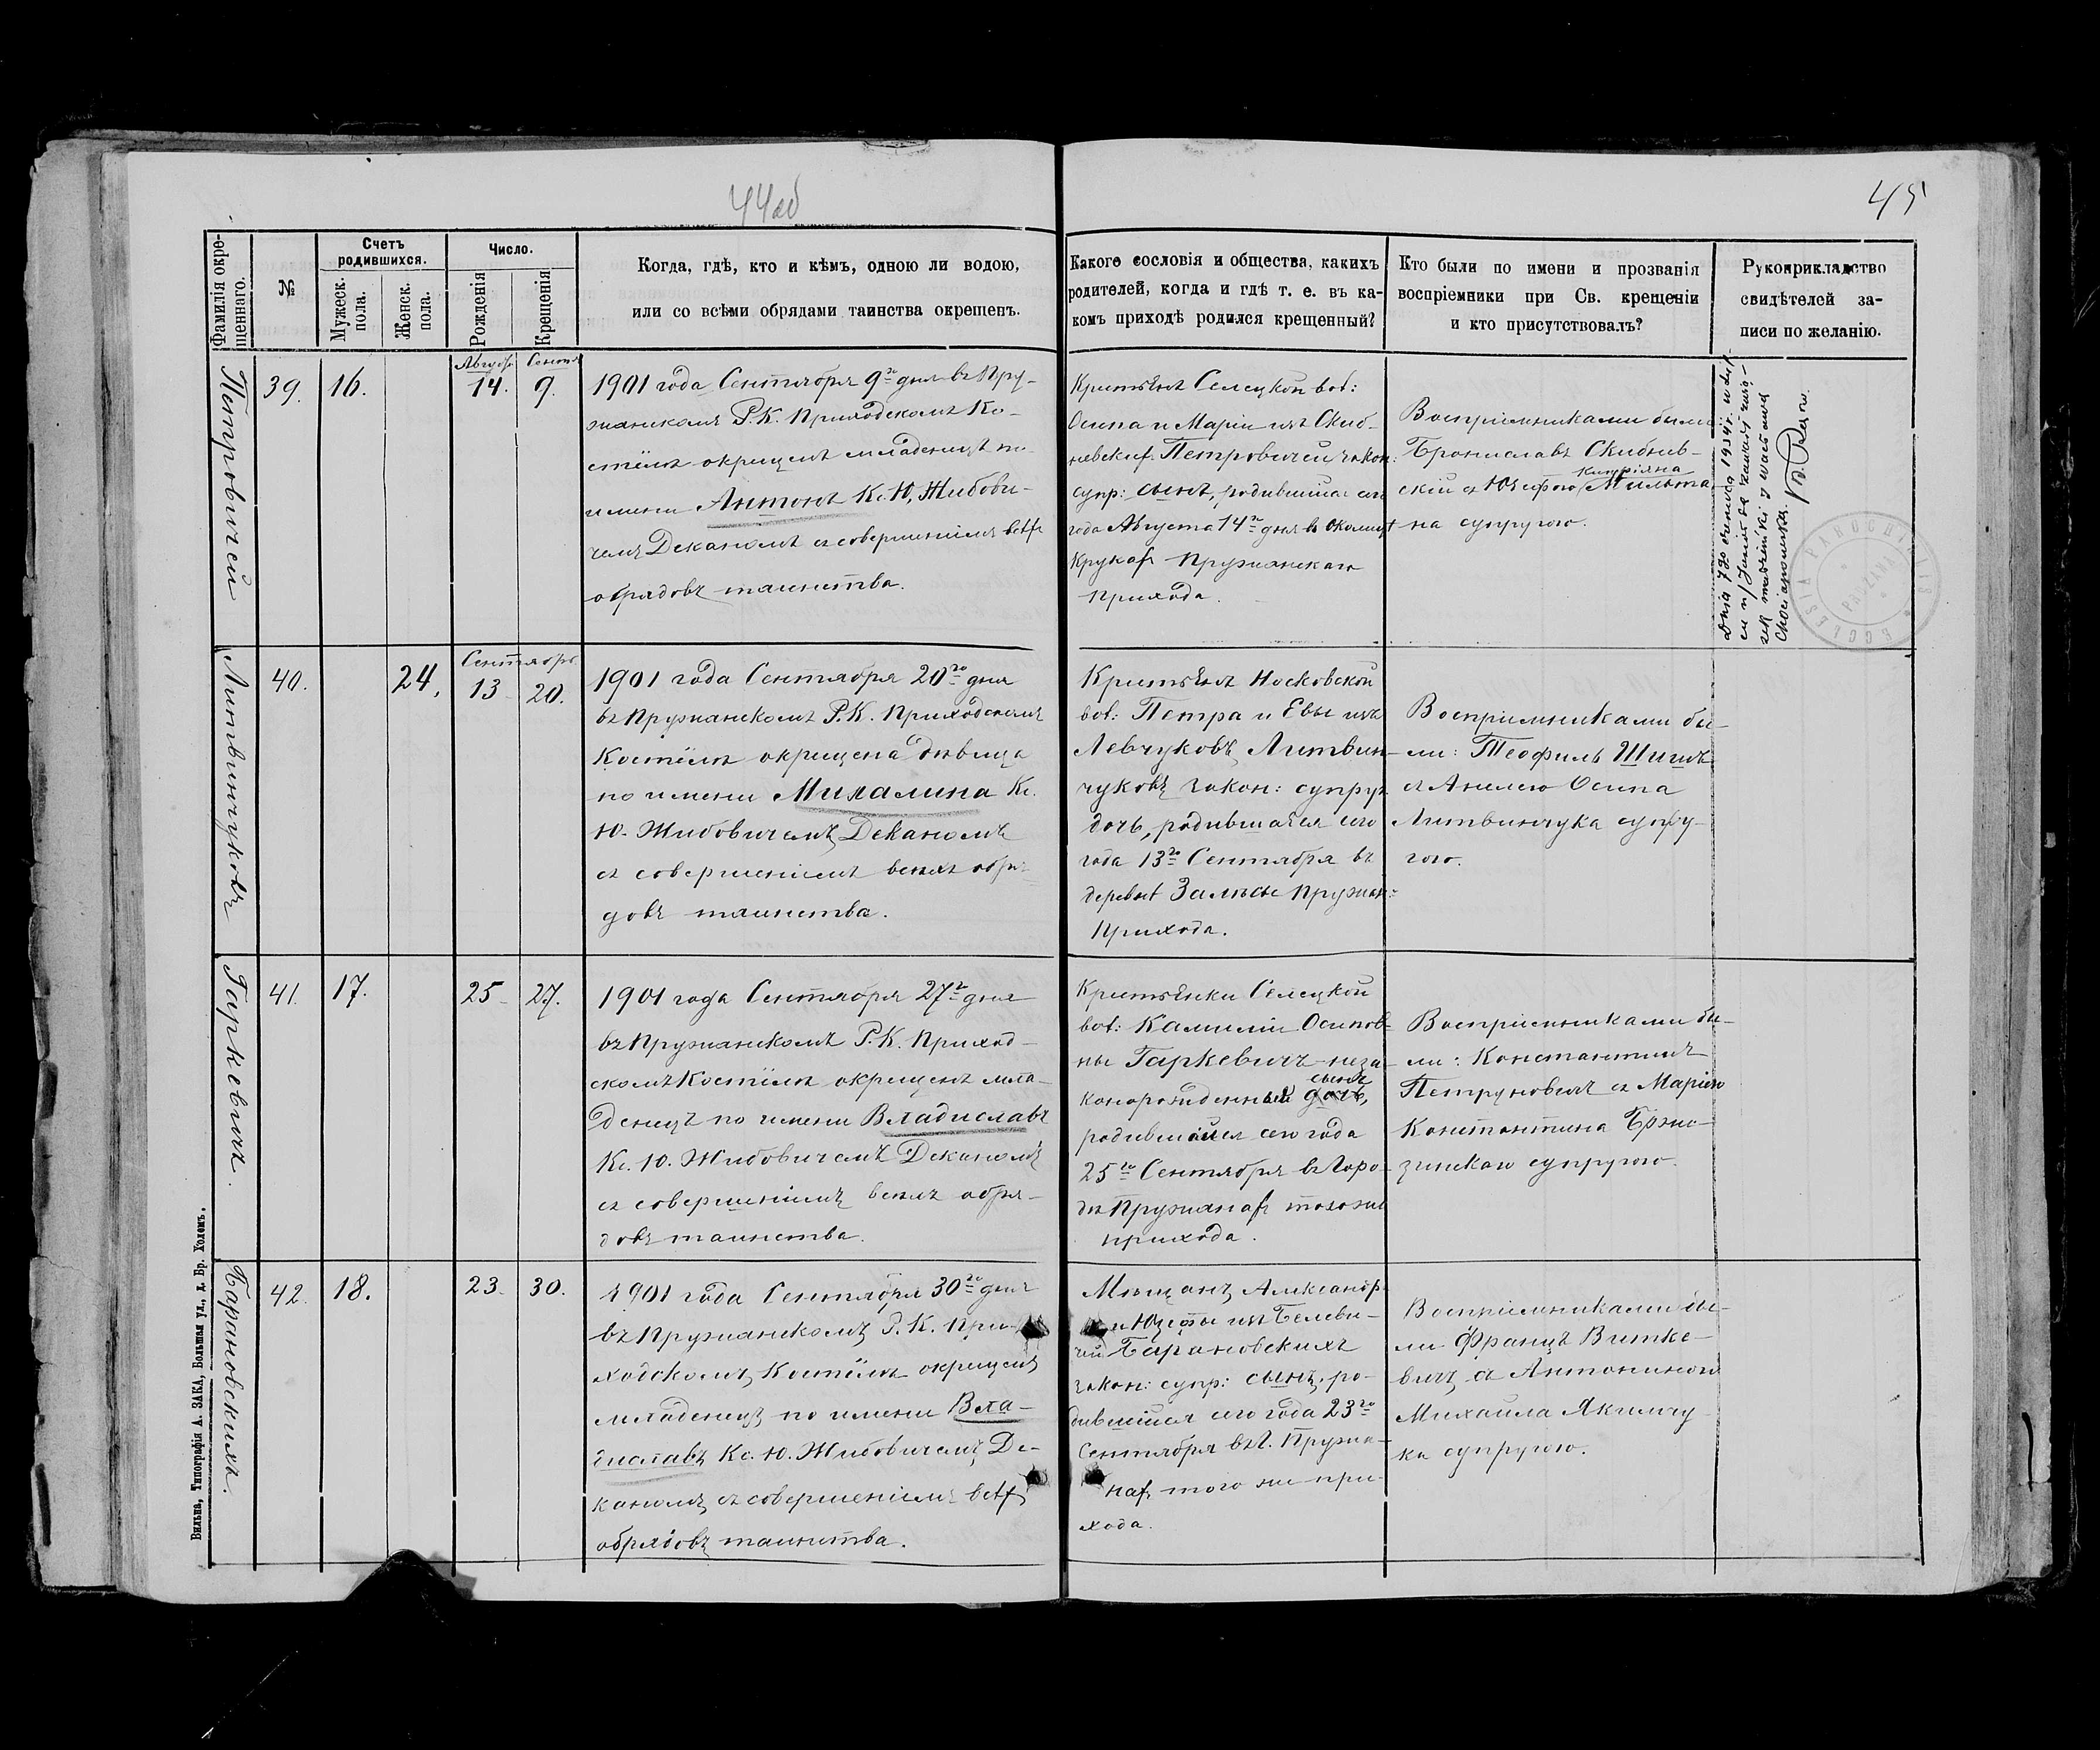 44об
45
Фамилія окре-
щеннаго.
№
Счетъ
родившихся.
Мужеск.
пола.
Женск.
пола.
Число.
Рожденія
Крещенія
Когда, гдѣ, кто и кѣмъ, одною ли водою,
или со всѣми обрядами таинства окрещенъ.
Какого сословія и общества, какихъ
родителей, когда и гдѣ т. е. въ ка-
комъ приходѣ родился крещенный?
Кто были по имени и прозванія
воспріемники при Св. крещеніи
и кто присутствовалъ?
Рукоприкладство
свидѣтелей за-
писи по желанію.
Петровичей
39.
16.
Августъ
14.
Сентя
9.
1901 года Сентября 9го дня въ Пру-
жанскомъ Р. К. Приходскомъ Ко-
стёлѣ окрещенъ младенецъ по
имени Антонъ Кс. Ю. Жибови-
чемъ Деканомъ съ совершеніемъ всѣхъ
обрядовъ таинства.
Крестьянъ Селецкой вол:
Осипа и Маріи изъ Скиб-
невскихъ Петровичей закон:
супр: сынъ, родившійся сего
года Августа 14го дня въ Околицѣ
Крукахъ Пружанскаго
Прихода.
Воспріемниками были
Брониславъ Скибнев-
скій съ Юзефою Кипріяна
на супругою.
Dnia 7 go czerwca 1934 r.
Choroszewska.
ECCLESIA PAROCHIALIS
Литвинчуковъ
40.
24.
Сентябрь
13
20.
1901 года Сентября 20го дня
въ Пружанскомъ Р. К. Приходскомъ
Костёлѣ окрещена дѣвица
по имени Михалина Кс.
Ю. Жибовичемъ Деканомъ
съ совершеніемъ всѣхъ обря-
довъ таинства.
Крестьянъ Носковской
вол: Петра и Евы изъ
Левчуковъ Литвин-
чуковъ закон: супруг
дочь, родившаяся сего
года 13го Сентября въ
деревнѣ Залѣсье Пружан:
Прихода.
Воспріемниками бы-
ли: Теофиль Шишъ
съ Анелею Осипа
Литвинчука супру-
гою.
Гаркевичъ.
41.
17.
25
27.
1901 года Сентября 27го дня
въ Пружанскомъ Р. К. Приход-
скомъ Костёлѣ окрещенъ мла-
денецъ по имени Владиславъ
Кс. Ю. Жибовичемъ Деканомъ
съ совершеніемъ всѣхъ обря-
довъ таинства.
Крестьянки Селецкой
вол: Камиліи Осипов-
ны Гаркевичъ неза-
конорожденный дочь, сынъ
родившійся сего года
25го Сентября въ Горо-
дѣ Пружанахъ того же
прихода.
Воспріемниками бы-
ли: Константинъ
Петруновичъ съ Маріею
Константина Брзо-
зинскаго супругою.
Барановскихъ.
42.
18.
23.
30.
1901 года Сентября 30го дня
въ Пружанскомъ Р. К. При-
ходскомъ Костёлѣ окрещенъ
младенецъ по имени Вла-
диславъ Кс. Ю. Жибовичемъ Де-
каномъ съ совершеніемъ всѣхъ
обрядовъ таинства.
Мѣщанъ Александр
и Юзефы изъ Белеви-
чей Барановскихъ
закон: супр: сынъ, ро-
дившійся сего года 23го
Сентября въ г. Пружа-
нахъ того же при-
хода.
Воспріемниками бы-
ли Францъ Витке-
вичъ съ Антониною
Михаила Якимчу-
ка супругою.
Вильна, Типографія А. ЗАКА, Большая ул., д. Бр. Холемъ.